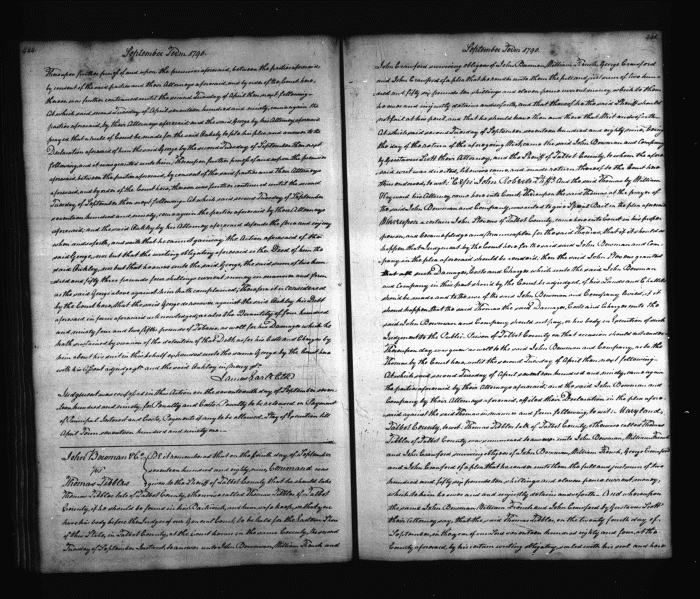 September Term 1790.
Thereupon further proof of and upon the premises aforesaid, between the parties aforesaid
by consent of the said parties and their Attornies aforesaid, and by order of the Court here,
thereon is further continued until the second Tuesday of April then next following
At which said second Tuesday of April seventeen hundred and ninety, come again the
parties aforesaid by their Attornies aforesaid and the said George by his Attorney aforesaid
prays that a rule of Court be made for the said Ashley to file his plea and answer to the
Declaration aforesaid of him the said George by the second Tuesday of September then next
following and it is granted unto him. Thereupon further proof of and upon the premises
aforesaid, between the parties aforesaid, by consent of the said parties and their Attornies
aforesaid, and by order of the Court here, thereon is further continued until the second
Tuesday of September then next following At which said second Tuesday of September
seventeen hundred and ninety, come again the parties aforesaid by their Attornies
aforesaid, and the said Ashley by his Attorney aforesaid defends the force and injury
when and so forth, and saith that he cannot gainsay the Action aforesaid of the
said George, nor but that the writing obligatory aforesaid is the Deed of him the
said Ashley, nor but that he owes unto the said George, the said sum of two hun-
dred and fifty three pounds four shillings current money in manner and form
as the said George above against him hath complained, Therefore it is considered
by the Court here, that the said George recover against the said Ashley his Debt
aforesaid in form aforesaid acknowledged, as also the Quantity of four hundred
and ninety four and two fifths pounds of Tobacco, as well for his Damages which he
hath sustained by occasion of the detention of the Debt, as for his Costs and Charges by
him about his suit in this behalf expended unto the same George by the Court here
with his Assent adjudged and the said Ashley in mercy &c
James Earle Clk
Judgement was confessed in this Action on the seventeenth day of September seven
teen hundred and ninety, for Penalty and Costs, Penalty to be released on Payment
of Principal Interest and Costs, Payments if any to be allowed. Stay of Execution till
April Term seventeen hundred and ninety one
John Bowman & Co.
vs
Thomas Tibbles
Be it remembered that on the fourth day of September
seventeen hundred and eighty nine, Command was
given to the Sheriff of Talbot County that he should take
Thomas Tibbles late of Talbot County, otherwise called Thomas Tibbles of Talbot
County, if he should be found in his Bailiwick, and him safe keep, so that he
have his body before the Judges of our General Court to be held for the Eastern Shore
of this State, in Talbot County, at the Court house in the same County, the second
Tuesday of September Instant, to answer unto John Bowman, William French and
September Term 1790.
John Crawford surviving obligees of John Bowman, William French, George Crawford
and John Crawford of a plea that he render unto them the full and just sum of two hun-
dred and fifty six pounds ten shillings and eleven pence current money which to them
he owes and unjustly detains and so forth, and that thereof he the said Sheriff should
not fail at his peril, and that he should have then and there that Writ and so forth
At which said second Tuesday of September seventeen hundred and eighty nine, being
the day of the return of the aforegoing Writ, came the said John Bowman and Company
by Gustavus Scott their Attorney, and the Sheriff of Talbot County, to whom the afore-
said writ was directed, likewise came and made return thereof to the Court here
thus endorsed, to wit. "Cepi John Roberts Shff" And the said Thomas by William
Hayward his Attorney came here into Court. Thereupon the said Thomas at the prayer of
the said John Bowman and Company, committed to give Special Bail in the plea aforesaid
Whereupon a certain John Stevens of Talbot County, came here into Court in his proper
person, and became pledge and manucaptor for the said Thomas, that if it should so
happen that Judgement by the Court here for the said said John Bowman and Com-
pany in the plea aforesaid should be rendered, then the said John Stevens granted
that all such Damages, Costs and Charges which unto the said John Bowman
and Company in this part should by the Court be adjudged, of his Lands and Chattels
should be made and to the use of the said John Bowman and Company levied, if it
should happen that the said Thomas the said Damages, Costs and Charges unto the
said John Bowman and Company should not pay, or his body in Execution of such
Judgement to the Public Prison of Talbot County on that occasion should not render
Thereupon day was given as well to the said John Bowman and Company, as to the
Thomas by the Court here, until the second Tuesday of April then next following.
At which said second Tuesday of April seventeen hundred and ninety, come again
the parties aforesaid by their Attornies aforesaid, and the said John Bowman and
Company by their Attorney aforesaid, offered their Declaration in the plea afore-
said against the said Thomas in manner and form following to wit. Maryland,
Talbot County, to wit. Thomas Tibbles late of Talbot County, otherwise called Thomas
Tibbles of Talbot County was summoned to answer unto John Bowman, William French
and John Crawford surviving obligees of John Bowman, William French, George Crawford
and John Crawford of a plea that he render unto them the full and just sum of two
hundred and fifty six pounds ten shillings and eleven pence current money,
which to them he owes and unjustly detains and so forth. And whereupon
the same John Bowman William French and John Crawford by Gustavus Scott
their Attorney say, that the said Thomas Tibbles, on the twenty fourth day of
September, in the year of our Lord seventeen hundred eighty and four, at the
County aforesaid, by his certain writing obligatory, sealed with his seal and here